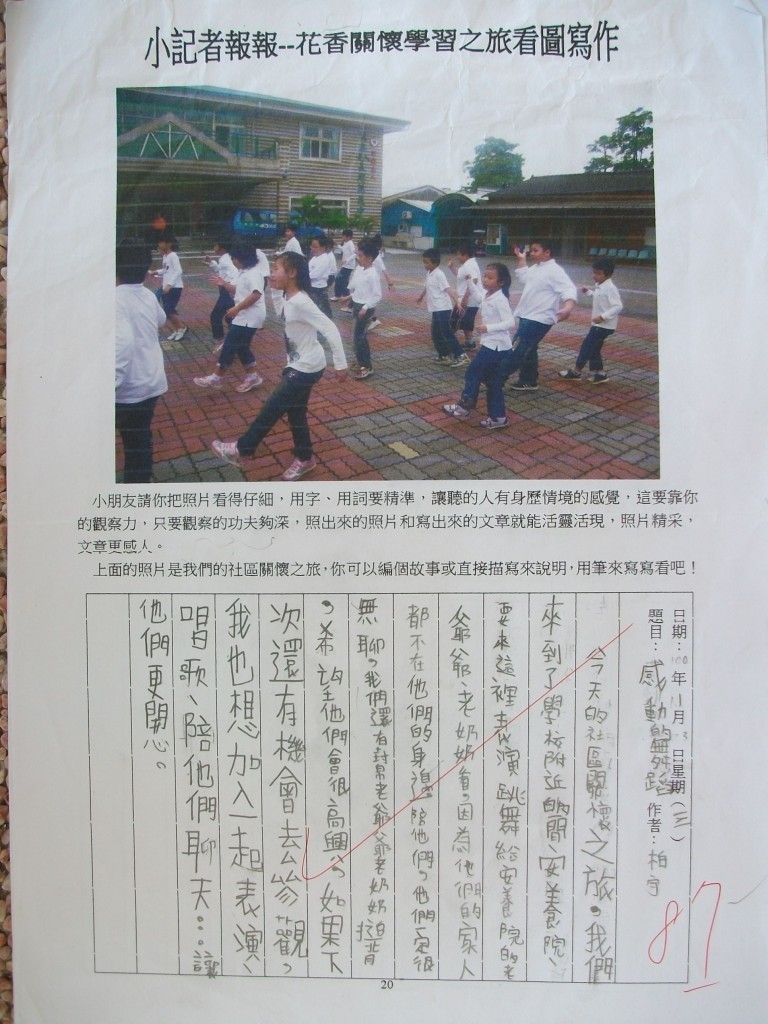 小記者報報--花香關懷學習之旅看圖寫作
小朋友請你把照片看得仔細，用字、用詞要精準，讓聽的人有身歷情境的感覺，這要靠你
的觀察力，只要觀察的功夫夠深，照出來的照片和寫出來的文章就能活靈活現，照片精采，
文章更感人。
上面的照片是我們的社區關懷之旅，你可以編個故事或直接描寫來說明，用筆來寫寫看吧！
日期：100年11月 日星期（三）
題目：感動的舞蹈 作者：柏宇
今天的社區關懷之旅。我們
來到了學校附近的一間安養院、
要來這裡表演跳舞給安養院的老
爺爺、老奶奶看。因為他們的家人
都不在他們的身邊陪他們。他們一定很
無聊。我們還有幫老爺爺老奶奶搥背
。希望他們會很高興。如果下
次還有機會去參觀。
我也想加入一起表演、
唱歌、陪他們聊天…讓
他們更開心。
87
20